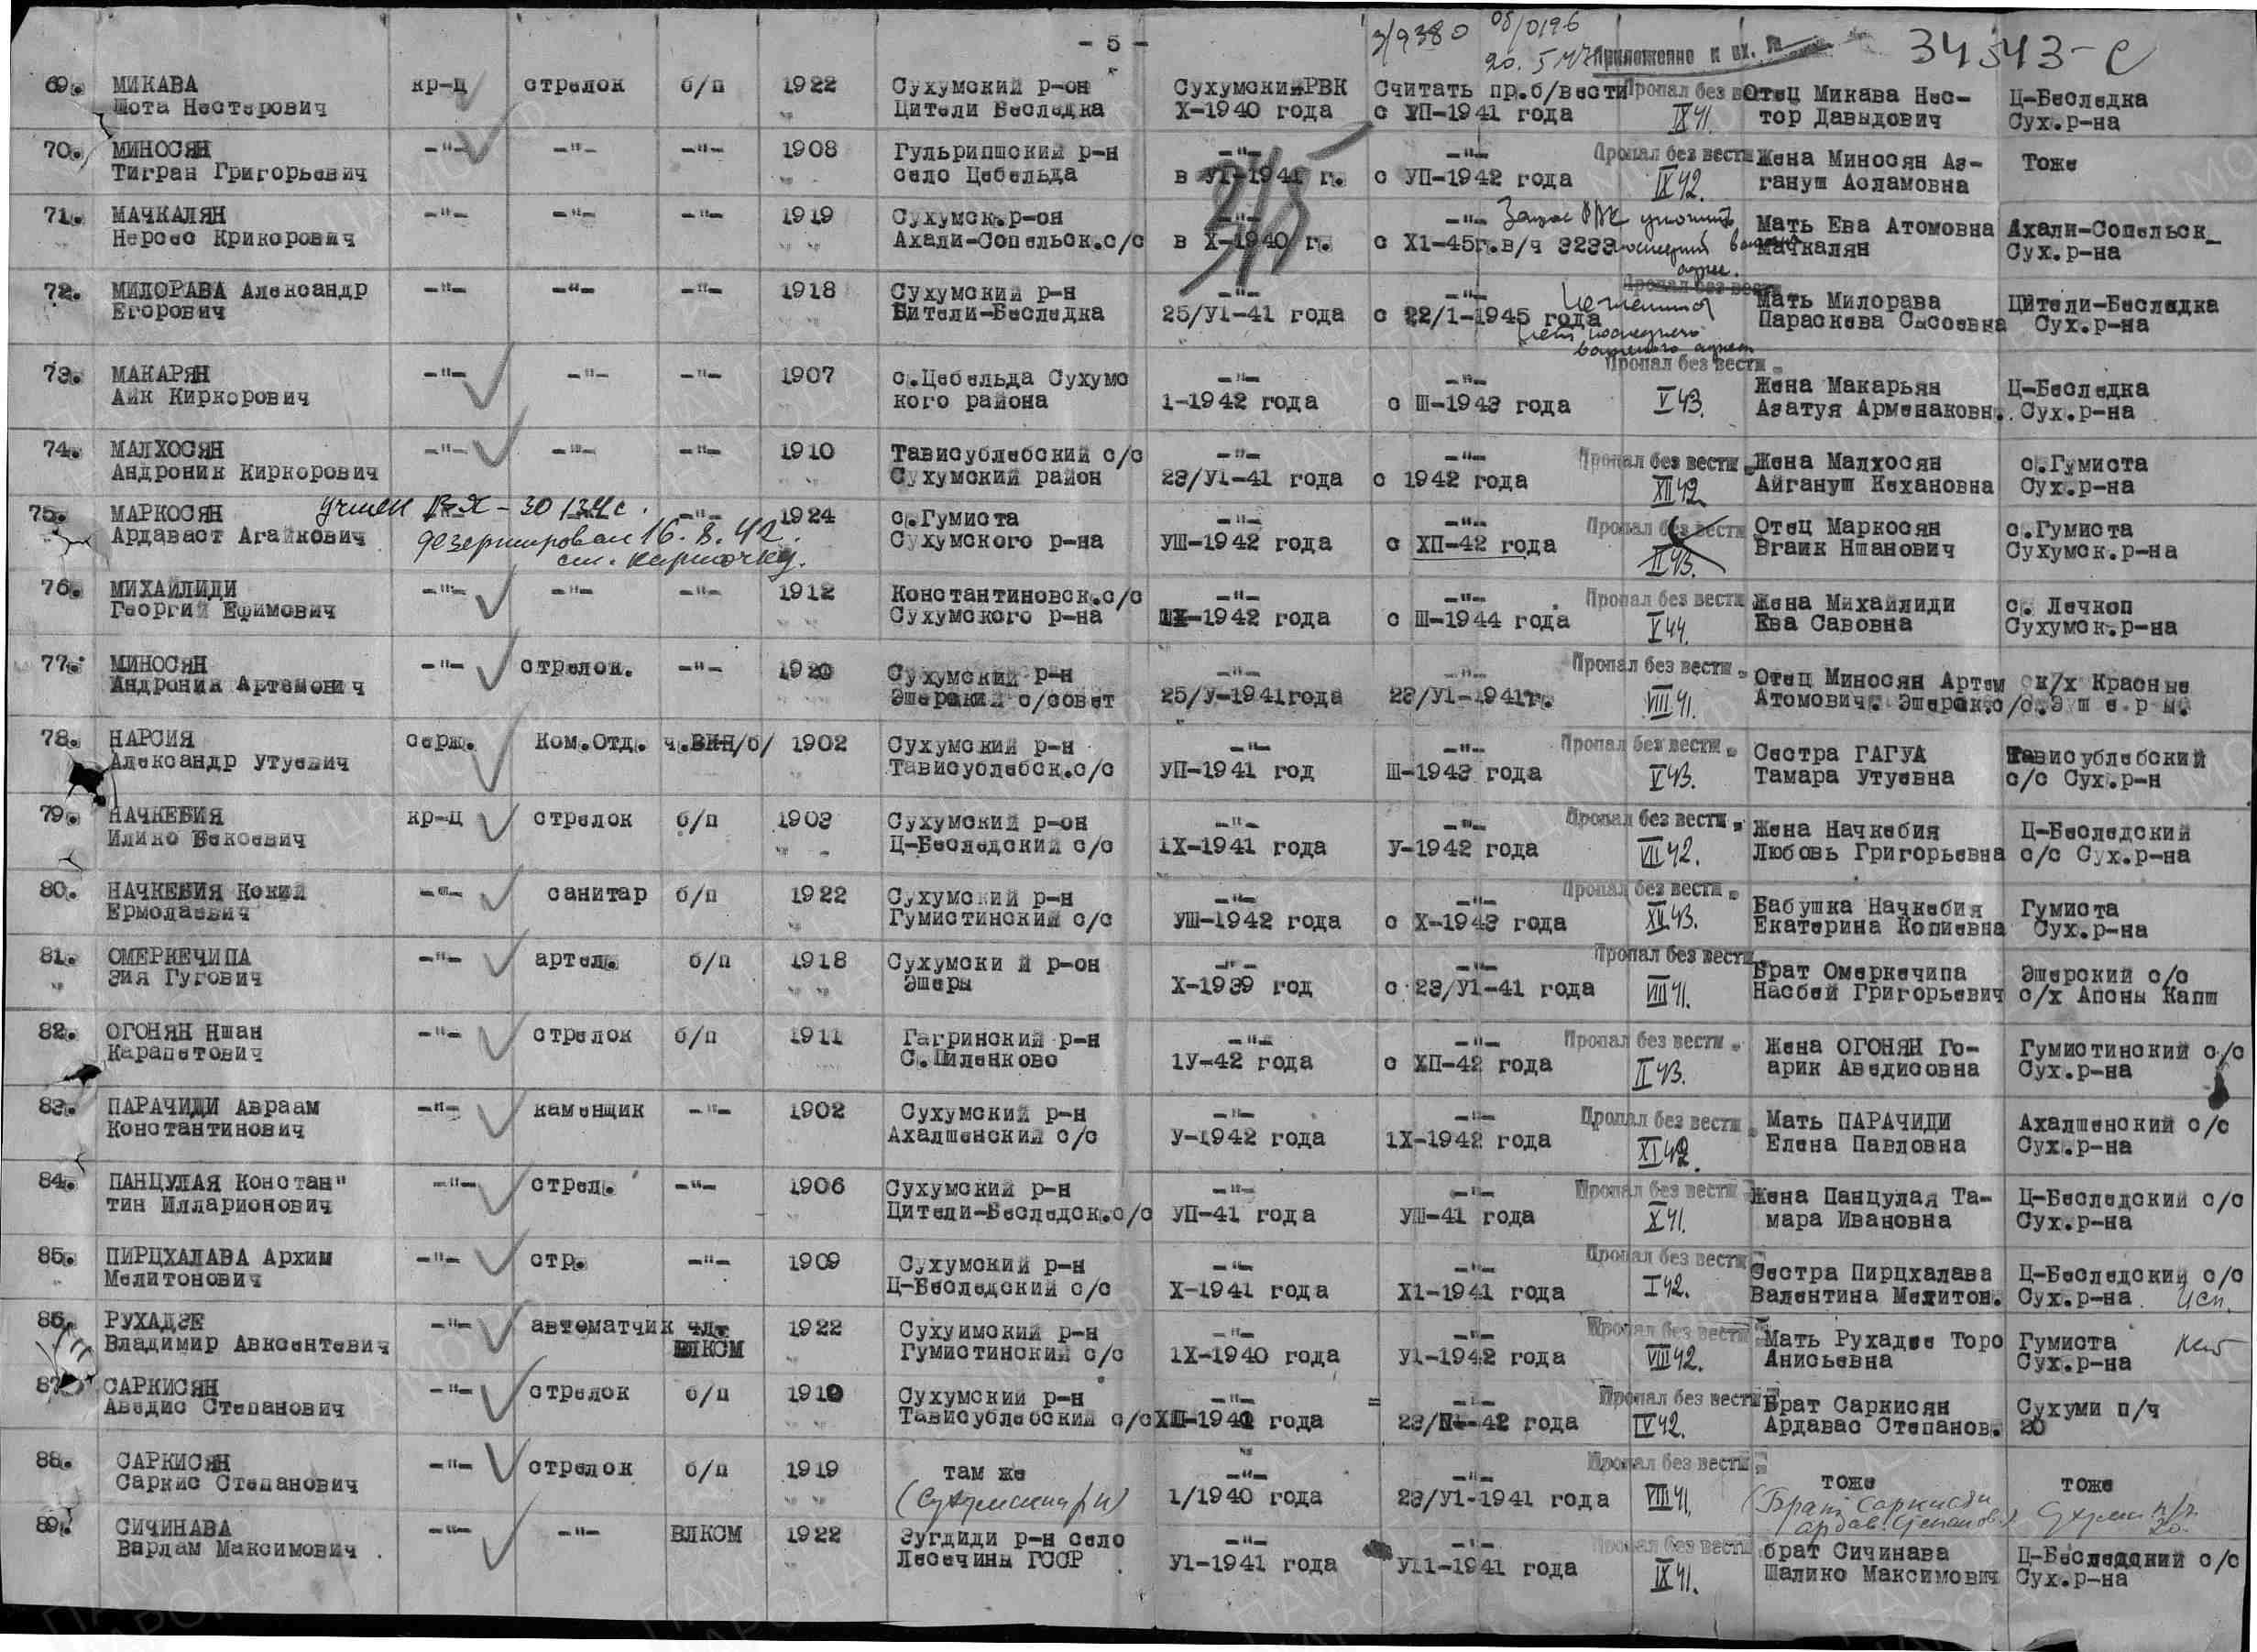 - 5 -
3/9380 об/0196
20. 5 47 Приложение к вх. №
34543-с
69. МИКАВА кр-ц стрелок б/п 1922 Сухумский р-он СухумскийРВК Считать пр.б/вести Пропал без вести Отец Микава Нес- Ц-Беследка
Шота Несторович Цители Беследка Х-1940 года с УП-1941 года IX 41. тор Давыдович Сух.р-на
70. МИНОСЯН -"- -"- -"- 1908 Гульрипшский р-н -"- -"- Пропал без вести Жена Миносян Аз- Тоже
Тигран Григорьевич село Цебельда в У1-1941 г. с УП-1942 года IX 42. гануш Асламовна
215
71. МАЧКАЛЯН -"- -"- -"- 1919 Сухумск.р-он -"- -"- Запрос РВК уточнить Мать Ева Атомовна Ахали-Сопельск_
Нерсес Крикорович Ахали-Сопельск.с/с в Х-1940 г. с Х1-45г.в/ч 3233 последний Мачкалян Сух.р-на
адрес.
72. МИЛОРАВА Александр -"- -"- -"- 1918 Сухумский р-н -"- -"- Пропал без вести Мать Милорава Цители-Беследка
Егорович Цители-Беследка 25/У1-41 года с 22/1-1945 года Параскева Сысоевна Сух.р-на
нет последнего
военного адреса
73. МАКАРЯН -"- -"- -"- 1907 с.Цебельда Сухумс -"- -"- Пропал без вести Жена Макарьян Ц-Беследка
Айк Киркорович кого района 1-1942 года с Ш-1943 года V 43. Азатуя Арменаковн. Сух.р-на
74. МАЛХОСЯН -"- -"- -"- 1910 Тависублебский с/с -"- -"- Пропал без вести Жена Малхосян с.Гумиста
Андроник Киркорович Сухумский район 23/У1-41 года с 1942 года XII 42 Айгануш Кехановна Сух.р-на
75. МАРКОСЯН учтен - 30 134с. -"- 1924 с.Гумиста -"- -"- Пропал без вести Отец Маркосян с.Гумиста
Ардаваст Агайкович дезертировал 16.8.42. Сухумского р-на УШ-1942 года с ХП-42 года II 43. Вгаик Ншанович Сухумск.р-на
см. карточку.
76. МИХАЙЛИДИ -"- -"- -"- 1912 Константиновск.с/с -"- -"- Пропал без вести Жена Михайлиди с. Лечкоп
Георгий Ефимович Сухумского р-на -1942 года с Ш-1944 года V 44. Ева Савовна Сухумск.р-на
77. МИНОСЯН -"- стрелок. -"- 1920 Сухумский р-н -"- -"- Пропал без вести Отец Миносян Артем к/х Красные
Андроник Артемович Эшерский с/совет 25/У-1941года 23/У1-1941г. VIII 41. Атомович. Эшерск.с/с.Эш е р ы.
78. НАРСИЯ серж. Ком.Отд. ч.ВКП/б/ 1902 Сухумский р-н -"- -"- Пропал без вести Сестра ГАГУА Тависублебский
Александр Утуевич Тависублебск.с/с УП-1941 год Ш-1943 года V 43. Тамара Утуевна с/с Сух.р-н
79. НАЧКЕБИЯ кр-ц стрелок б/п 1903 Сухумский р-он -"- -"- Пропал без вести Жена Начкебия Ц-Беследский
Илико Бекоевич Ц-Беследский с/с 1Х-1941 года У-1942 года VII 42. Любовь Григорьевна с/с Сух.р-на
80. НАЧКЕБИЯ Кокий -"- санитар б/п 1922 Сухумский р-н -"- -"- Пропал без вести Бабушка Начкебия Гумиста
Ермолаевич Гумистинский с/с УШ-1942 года с Х-1943 года XII 43. Екатерина Копиевна Сух.р-на
81. ОМЕРКЕЧИПА -"- артел. б/п 1918 Сухумски й р-он -"- -"- Пропал без вести Брат Омеркечипа Эшерский с/с
Зия Гугович Эшеры Х-1939 год с 23/У1-41 года VIII 41. Насбей Григорьевич с/х Апсны Капш
82. ОГОНЯН Ншан -"- стрелок б/п 1911 Гагринский р-н -"- -"- Пропал без вести Жена ОГОНЯН Го- Гумистинский с/с
Карапетович С.Пиленково 1У-42 года с ХП-42 года II 43. арик Аведисовна Сух.р-на
83. ПАРАЧИДИ Авраам -"- каменщик -"- 1902 Сухумский р-н -"- -"- Пропал без вести Мать ПАРАЧИДИ Ахалшенский с/с
Константинович Ахалшенский с/с У-1942 года 1Х-1942 года XI 42. Елена Павловна Сух.р-на
84. ПАНЦУЛАЯ Констан" -"- стрел. -"- 1906 Сухумский р-н -"- -"- Пропал без вести Жена Панцулая Та- Ц-Беследский с/с
тин Илларионович Цители-Беследск.с/с УП-41 года УШ-41 года X 41. мара Ивановна Сух.р-на
85. ПИРЦХАЛАВА Архим -"- стр. -"- 1909 Сухумский р-н -"- -"- Пропал без вести Сестра Пирцхалава Ц-Беследский с/с
Мелитонович Ц-Беследский с/с Х-1941 года Х1-1941 года I 42. Валентина Мелитон. Сух.р-на исп.
86. РУХАДЗЕ -"- автоматчик чл. 1922 Сухуимский р-н -"- -"- Пропал без вести Мать Рухадзе Торо Гумиста
Владимир Авксентевич ВЛКСМ Гумистинский с/с 1Х-1940 года У1-1942 года VIII 42. Анисьевна Сух.р-на
87. САРКИСЯН -"- стрелок б/п 1910 Сухумский р-н -"- -"- Пропал без вести Брат Саркисян Сухуми п/ч
Аведис Степанович Тависублебский с/с -1941 года 23/ -42 года IV 42. Ардавас Степанов. 20
88. САРКИСЯН -"- стрелок б/п 1919 там же -"- -"- Пропал без вести тоже тоже
Саркис Степанович (Сухумский р-н) 1/1940 года 23/У1-1941 года VIII 41. (Брат Саркисян Ардав. Степанов.) Сухуми п/ч 20.
89. СИЧИНАВА -"- -"- ВЛКСМ 1922 Зугдиди р-н село -"- -"- Пропал без вести брат Сичинава Ц-Беследский с/с
Вардам Максимович Лесечины ГССР У1-1941 года У11-1941 года IX 41. Шалико Максимович Сух.р-на